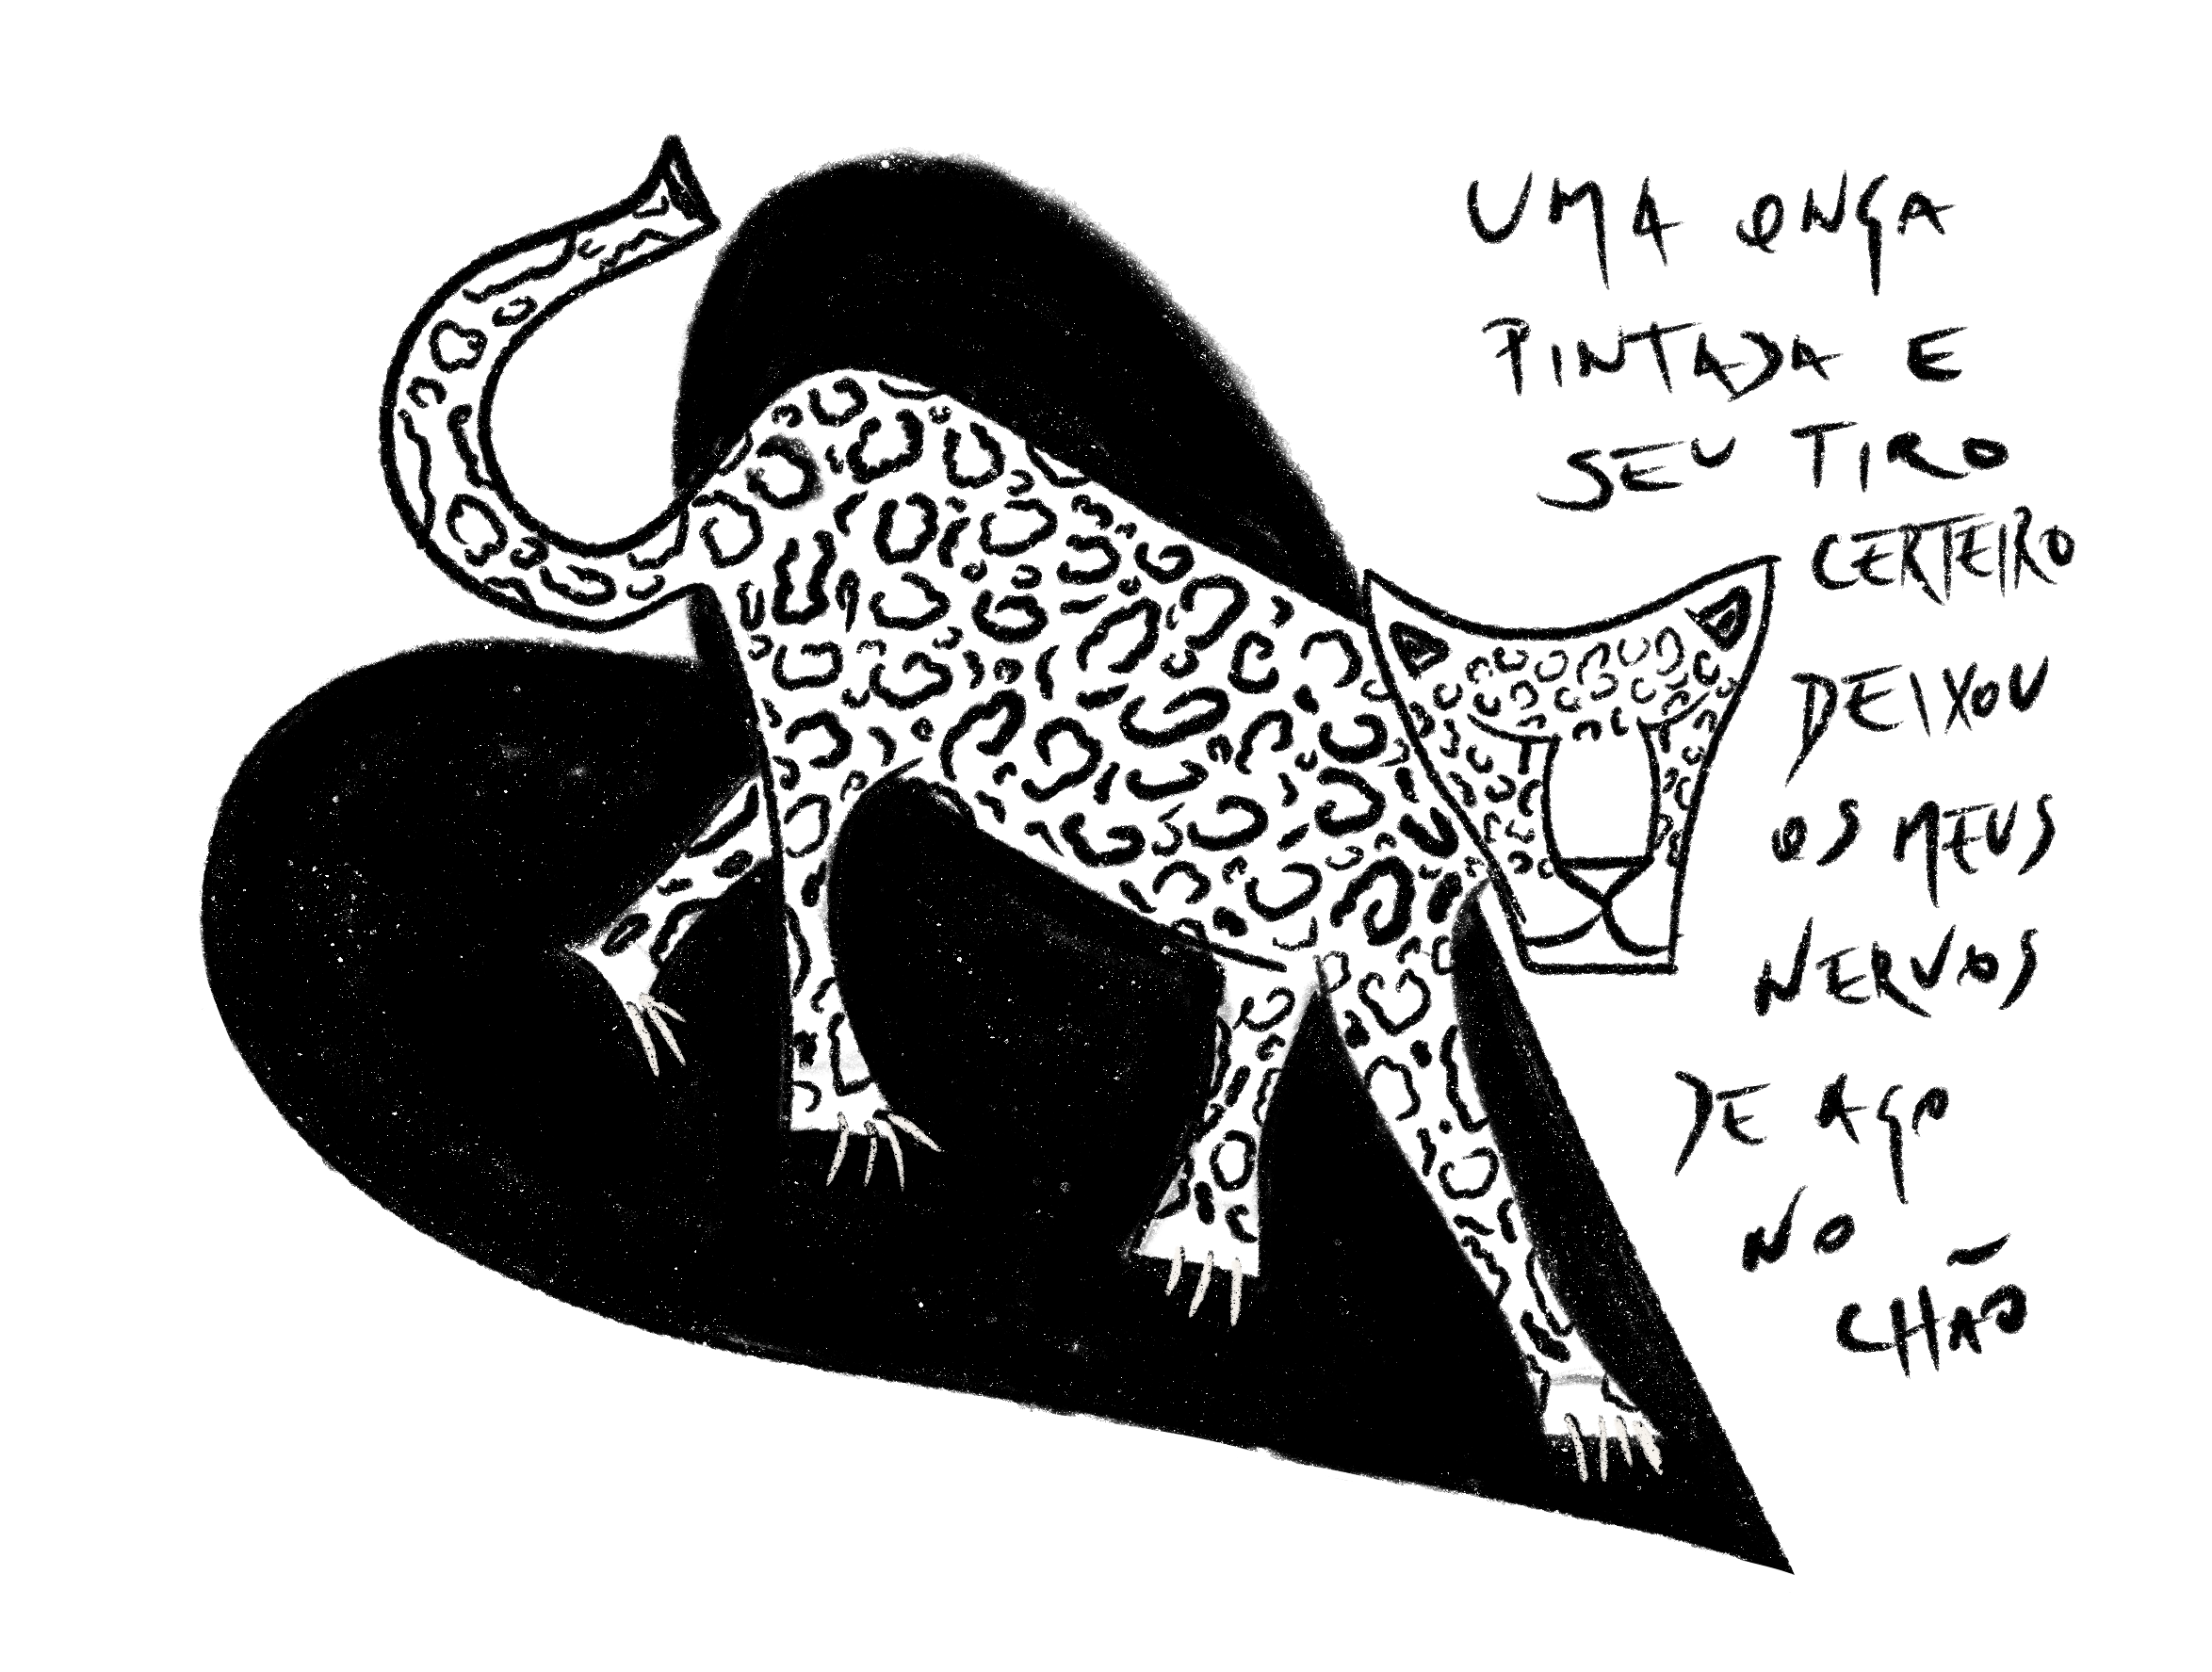 UMA ONÇA
PINTADA E
SEU TIRO
CERTEIRO
DEIXOU
OS MEUS
NERVOS
DE AÇO
NO
CHÃO